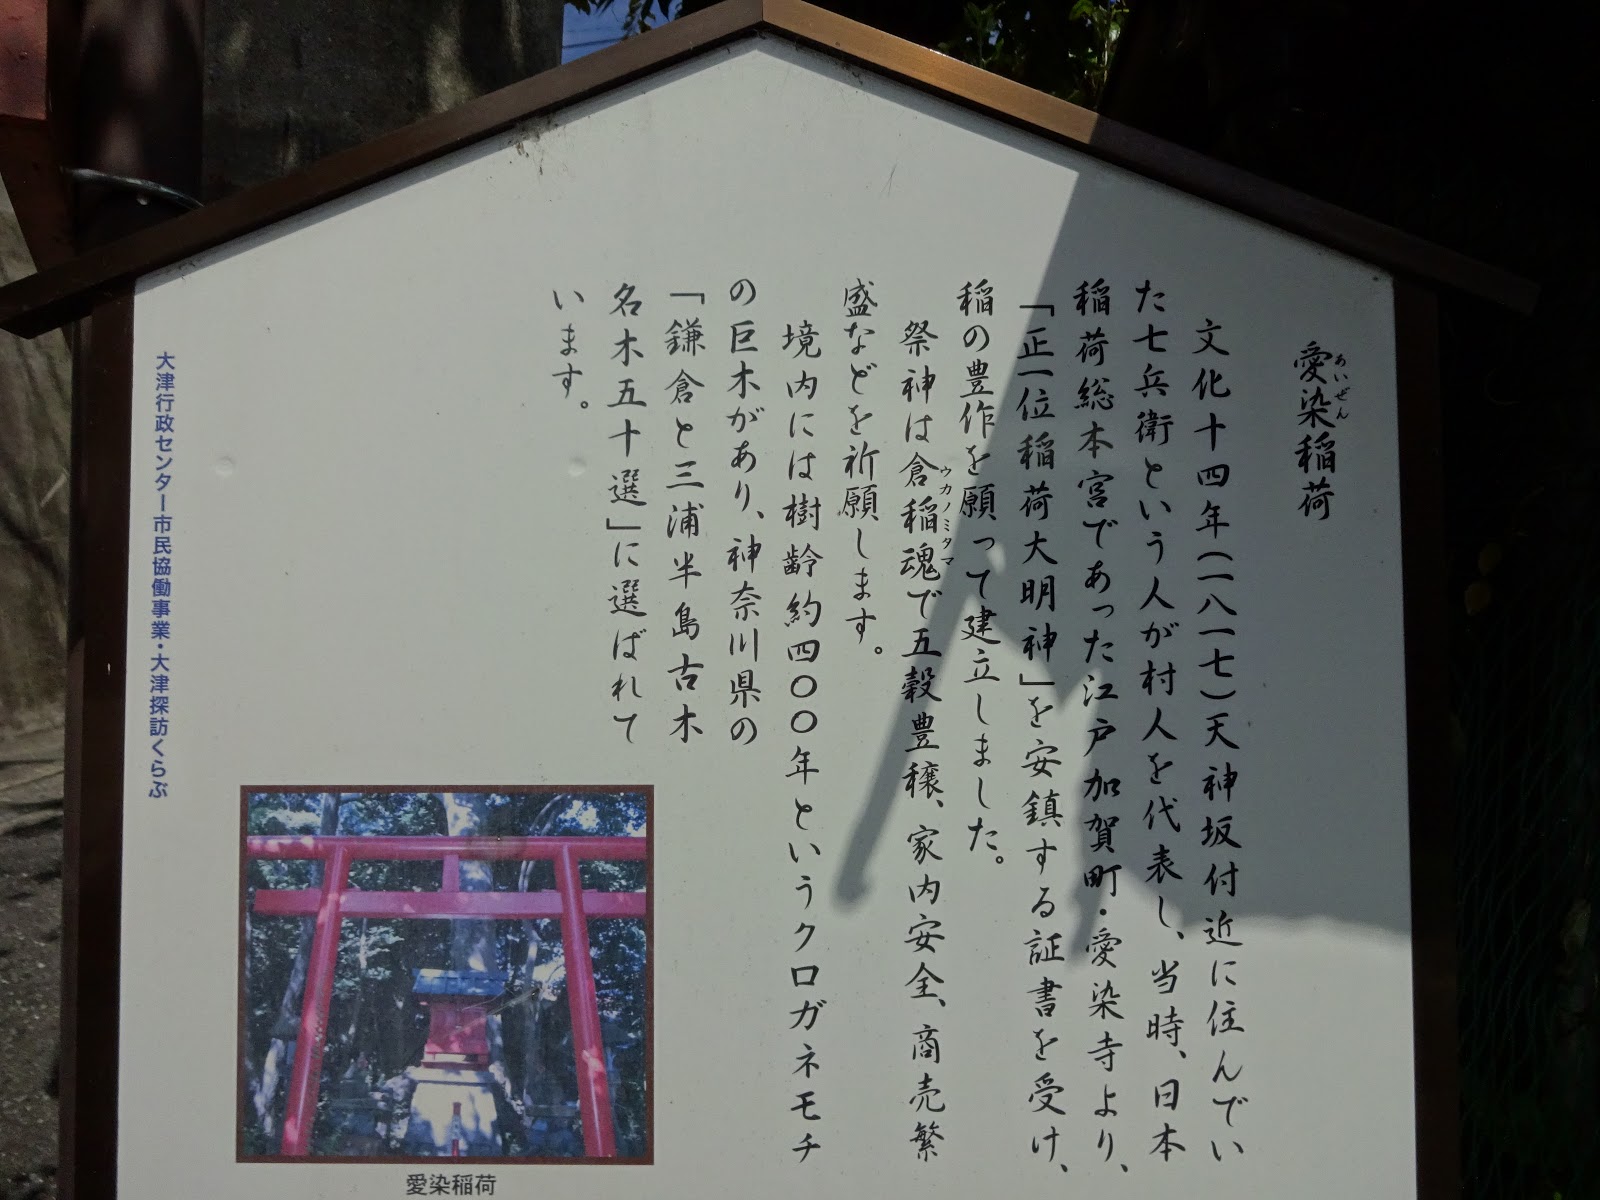 愛染稲荷
あいぜん
文化十四年(一八一七)天神坂付近に住んでい
た七兵衛という人が村人を代表し、当時、日本
稲荷総本宮であった江戸加賀町・愛染寺より、
「正一位稲荷大明神」を安鎮する証書を受け、
稲の豊作を願って建立しました。
祭神は倉稲魂で五穀豊穣、家内安全、商売繁
ウカノミタマ
盛などを祈願します。
境内には樹齢約四〇〇年というクロガネモチ
の巨木があり、神奈川県の
「鎌倉と三浦半島古木
名木五十選」に選ばれて
います。
大津行政センター市民協働事業・大津探訪くらぶ
愛染稲荷